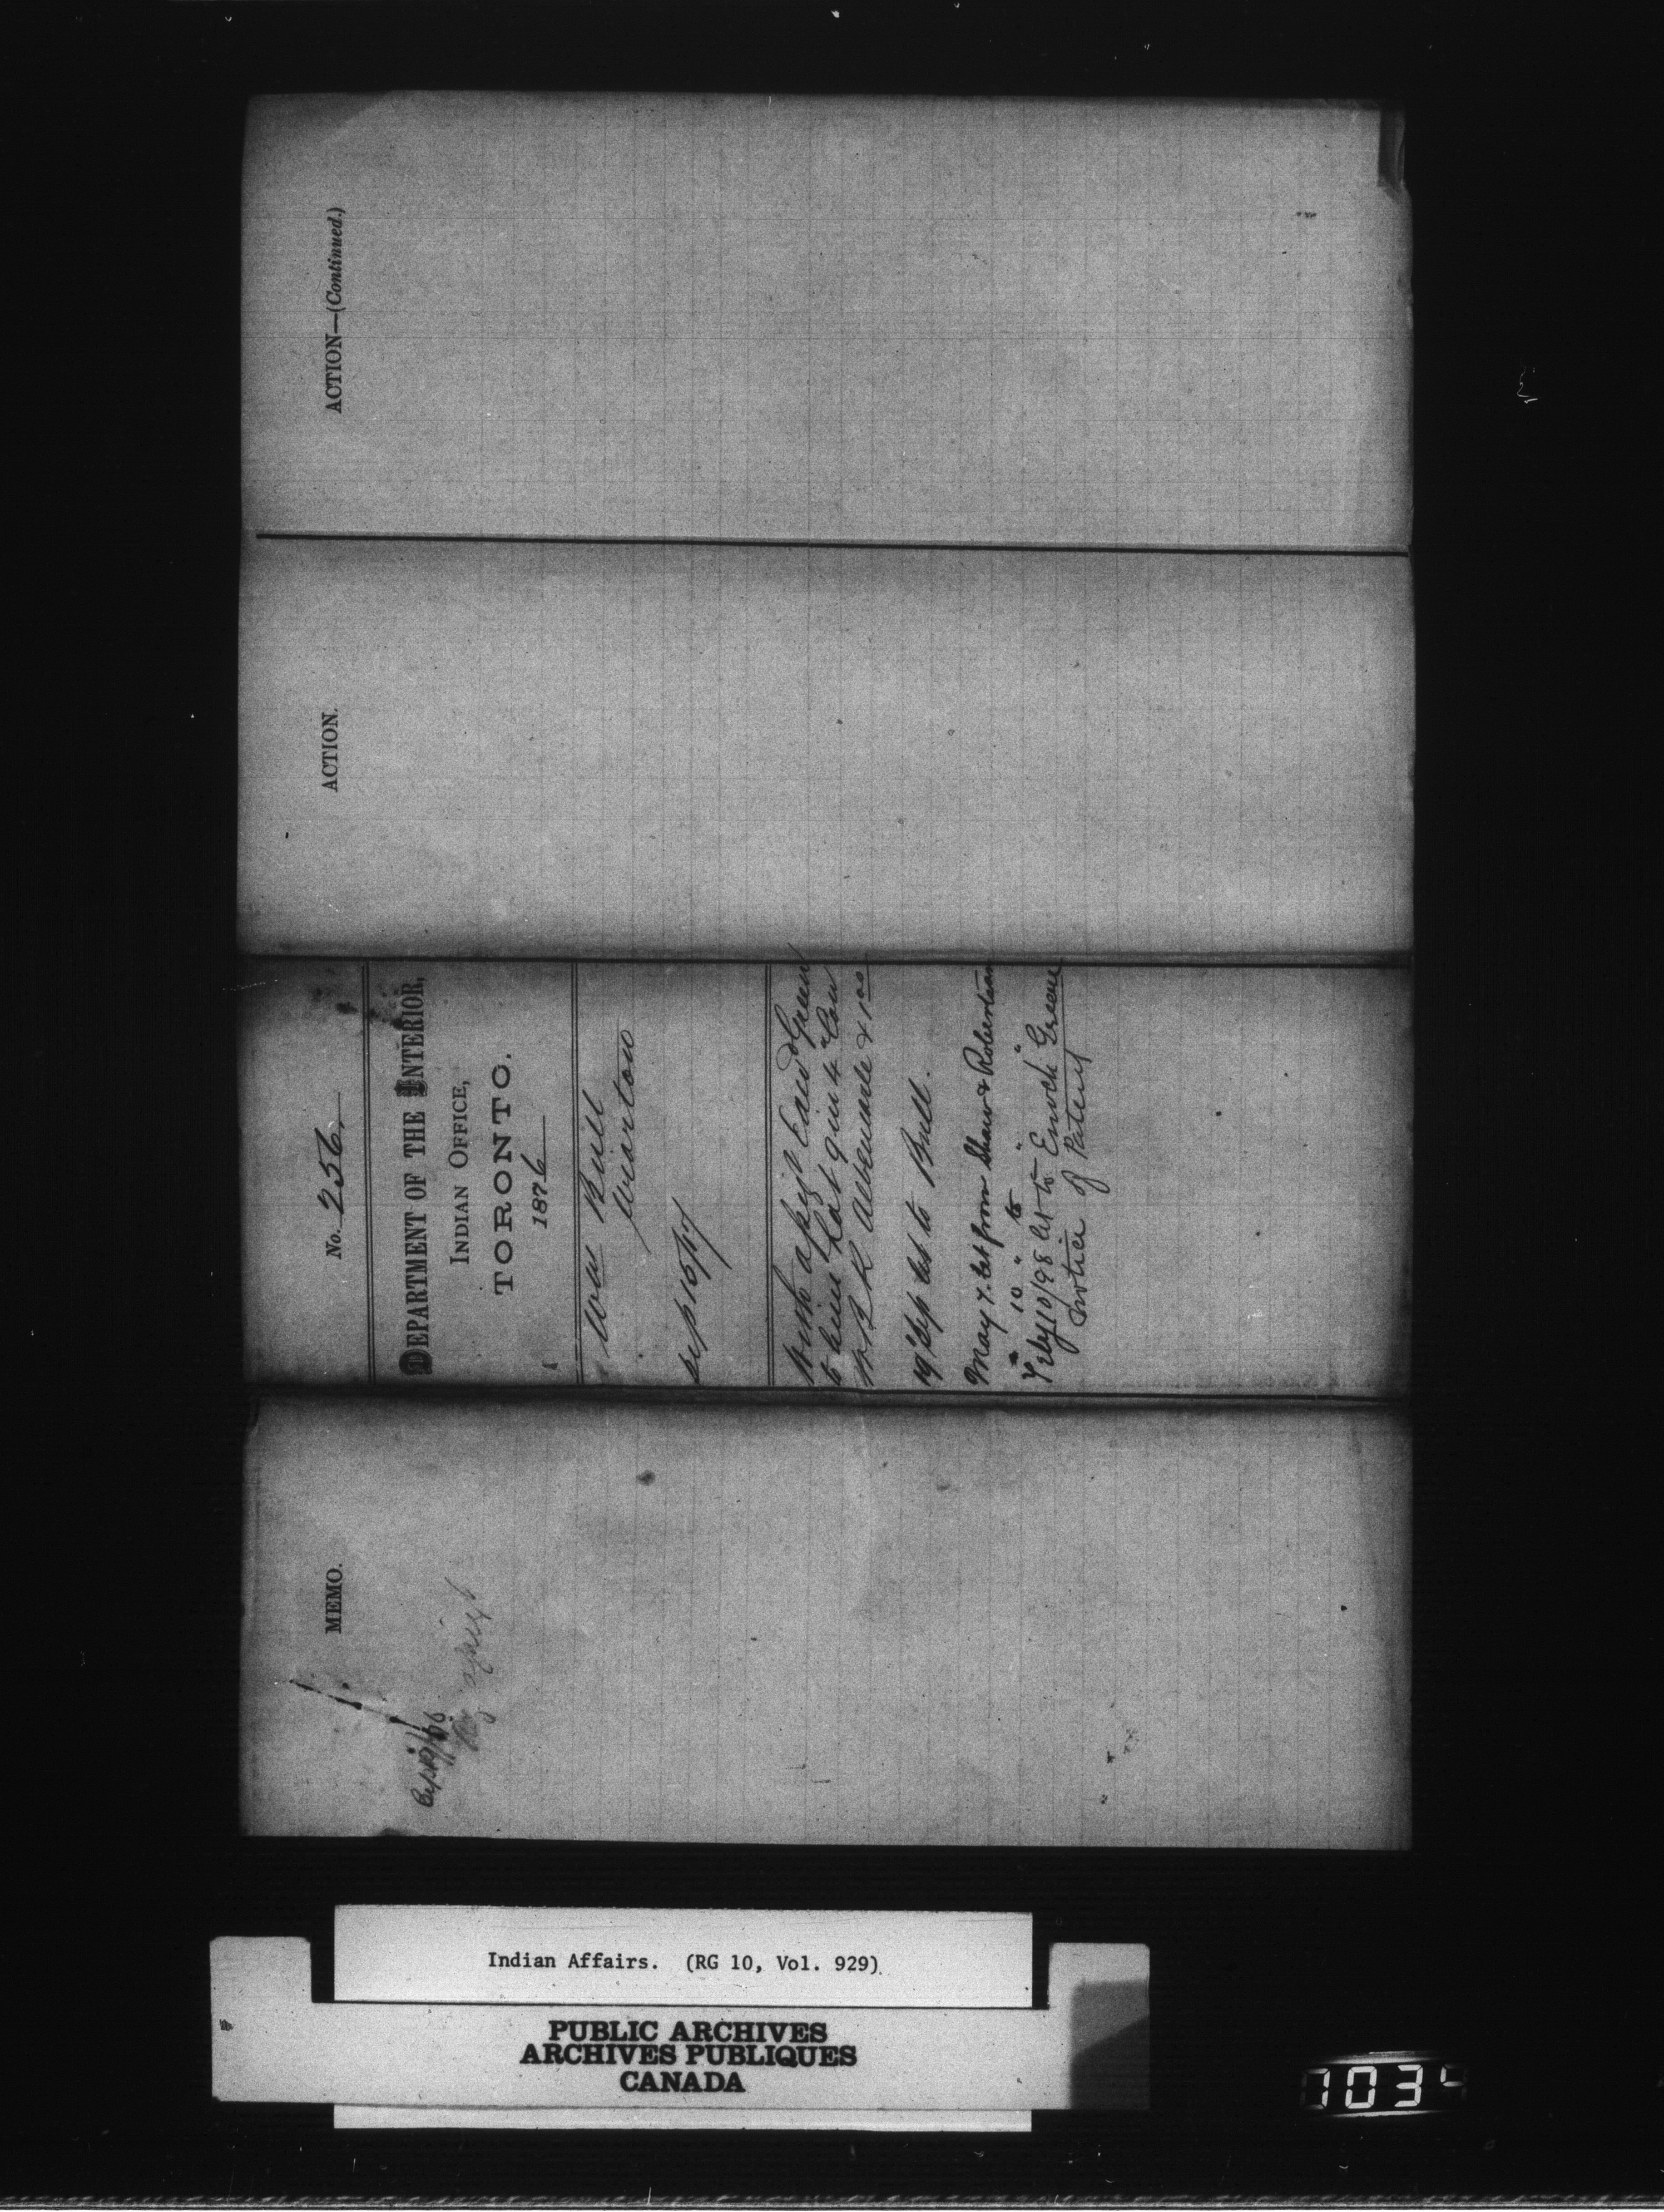 MEMO.
No. 256
DEPARTMENT OF THE INTERIOR,
INDIAN OFFICE,
TORONTO.
1876
Wm Bull
Wiarton
with Enoch Green
to Lot 9 in 4 Con
W B R Albemarle & 1 00
19 Sep let to Bull.
May 7. let from Shaw & Robertson
" 10 " to " "
Feby 10/98 let to Enoch Greene
Notice of Patent
ACTION.
ACTION—(Continued.)
Indian Affairs. (RG 10, Vol. 929)
PUBLIC ARCHIVES
ARCHIVES PUBLIQUES
CANADA
1034